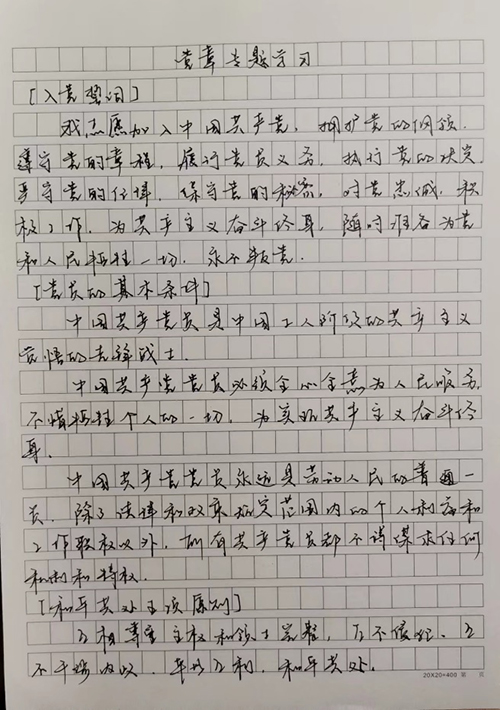 党章专题学习
[入党誓词]
我志愿加入中国共产党，拥护党的纲领，
遵守党的章程，履行党员义务，执行党的决定，
严守党的纪律，保守党的秘密，对党忠诚，积
极工作，为共产主义奋斗终身，随时准备为党
和人民牺牲一切，永不叛党。
[党员的基本条件]
中国共产党党员是中国工人阶级的共产主义
觉悟的先锋战士.
中国共产党党员必须全心全意为人民服务，
不惜牺牲个人的一切，为实现共产主义奋斗终
身.
中国共产党党员永远是劳动人民的普通一
员.除了法律和政策规定范围内的个人利益和
工作职权以外，所有共产党员都不得谋求任何
私利和特权.
[和平共处五项原则]
互相尊重主权和领土完整，互不侵犯、互
不干涉内政、平等互利、和平共处.
20X20=400 第 页